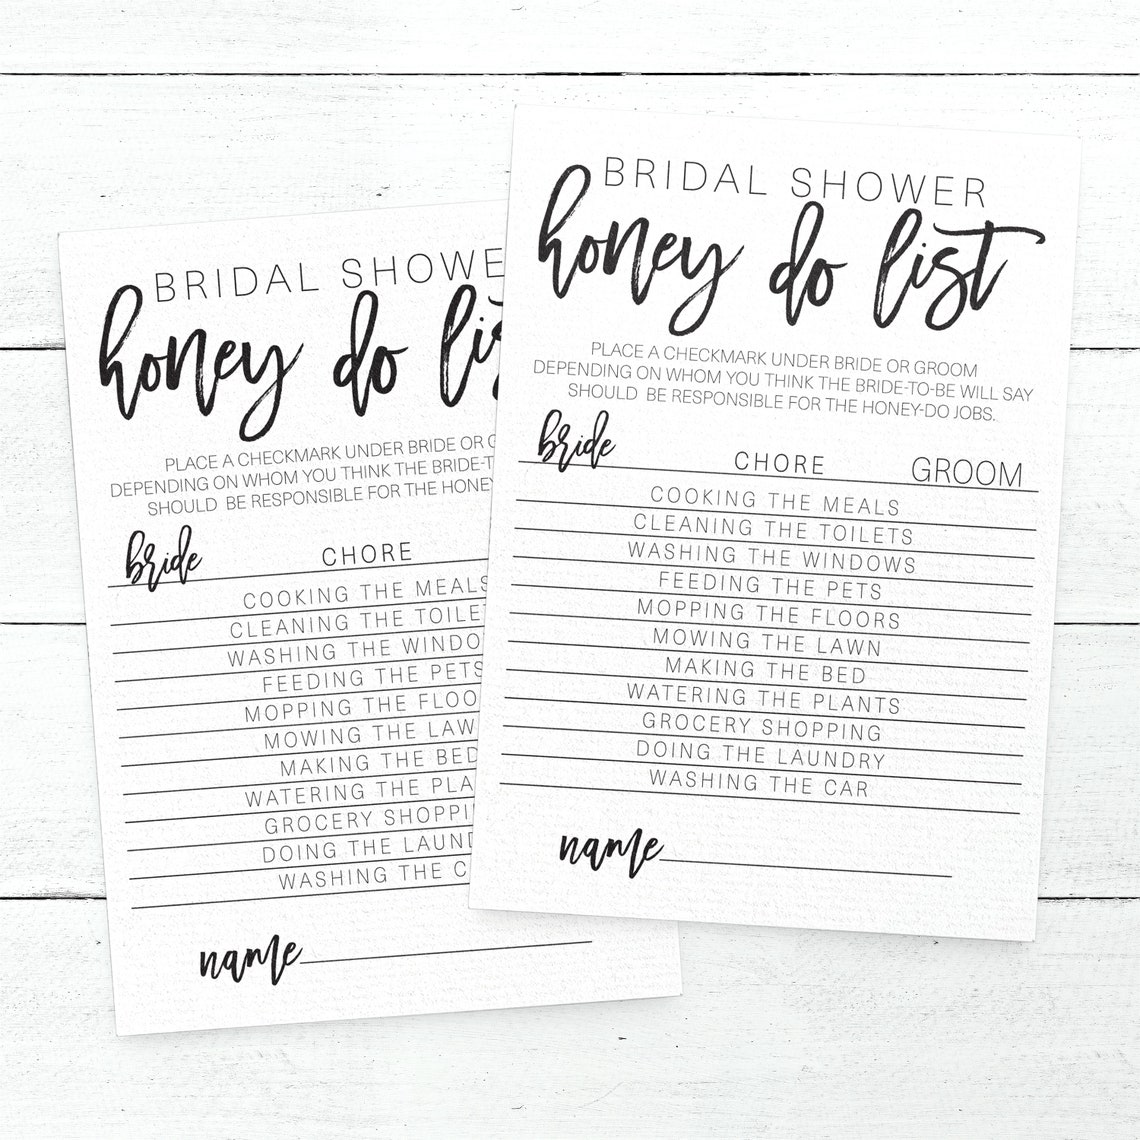 BRIDAL SHOWE
honey do lis
PLACE A CHECKMARK UNDER BRIDE OR G
DEPENDING ON WHOM YOU THINK THE BRIDE-T
SHOULD BE RESPONSIBLE FOR THE HONEY
bride CHORE
COOKING THE MEALS
CLEANING THE TOILET
WASHING THE WINDO
FEEDING THE PETS
MOPPING THE FLOO
MOWING THE LAW
MAKING THE BED
WATERING THE PLA
GROCERY SHOPPI
DOING THE LAUND
WASHING THE C
name
BRIDAL SHOWER
honey do list
PLACE A CHECKMARK UNDER BRIDE OR GROOM
DEPENDING ON WHOM YOU THINK THE BRIDE-TO-BE WILL SAY
SHOULD BE RESPONSIBLE FOR THE HONEY-DO JOBS.
bride CHORE GROOM
COOKING THE MEALS
CLEANING THE TOILETS
WASHING THE WINDOWS
FEEDING THE PETS
MOPPING THE FLOORS
MOWING THE LAWN
MAKING THE BED
WATERING THE PLANTS
GROCERY SHOPPING
DOING THE LAUNDRY
WASHING THE CAR
name